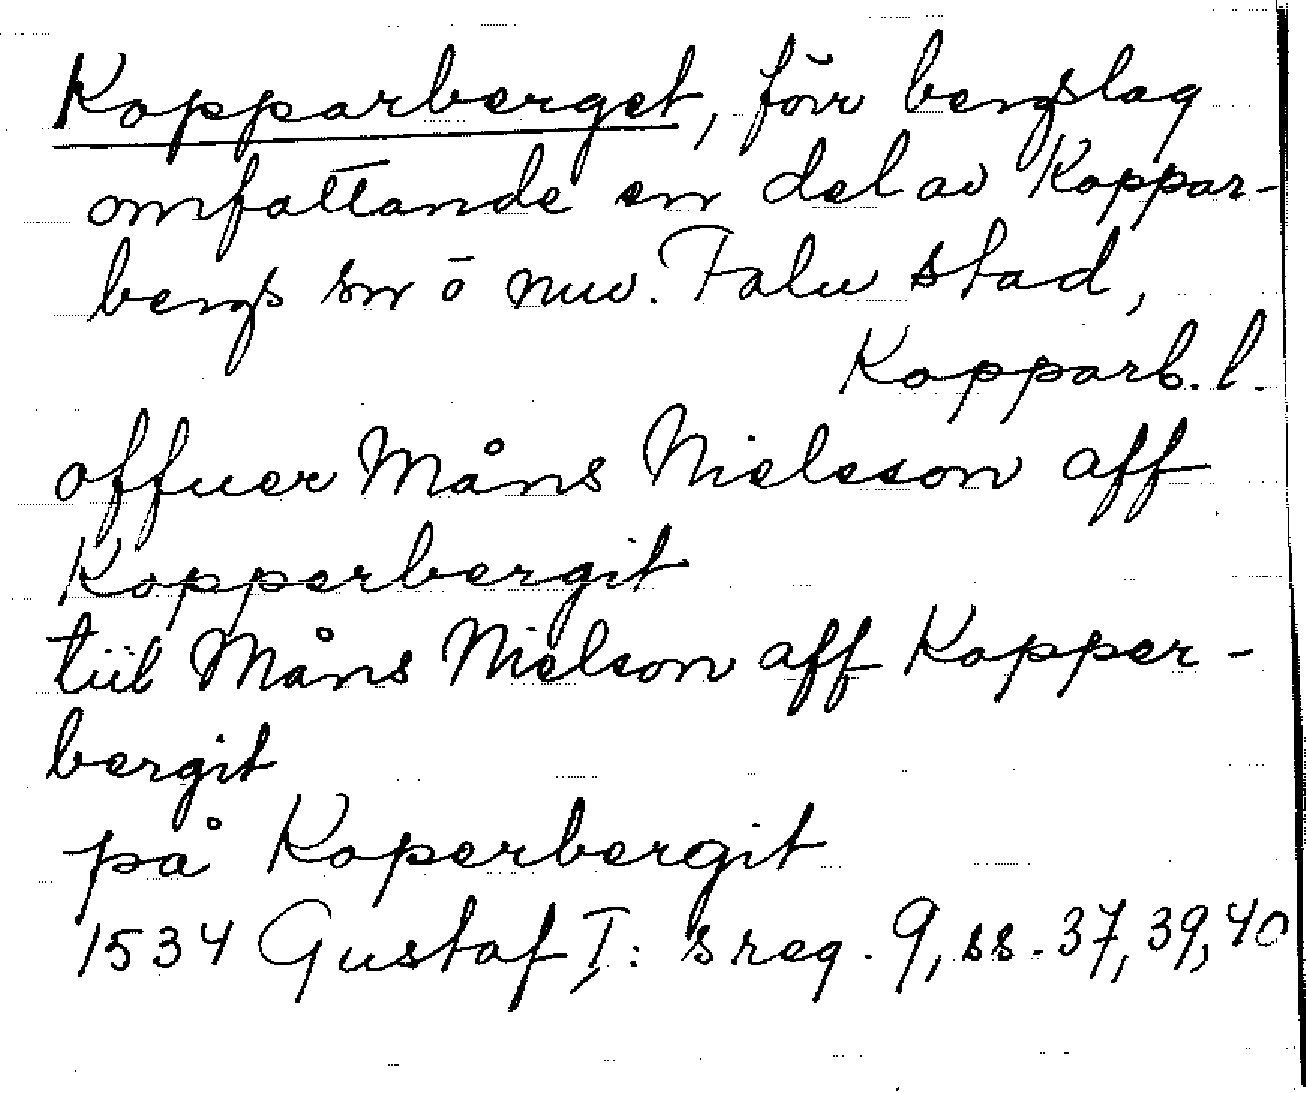 Kopparberget, förr bergslag
omfattande en del av Koppar-
bergs sn o nuv. Falu stad,
Kopparb. l.
offuer Måns Nielsson aff
Kopperbergit
tiil Måns Nielson aff Kopper-
bergit
på Koperbergit
1534 Gustaf I:s reg. 9, ss. 37, 39, 40